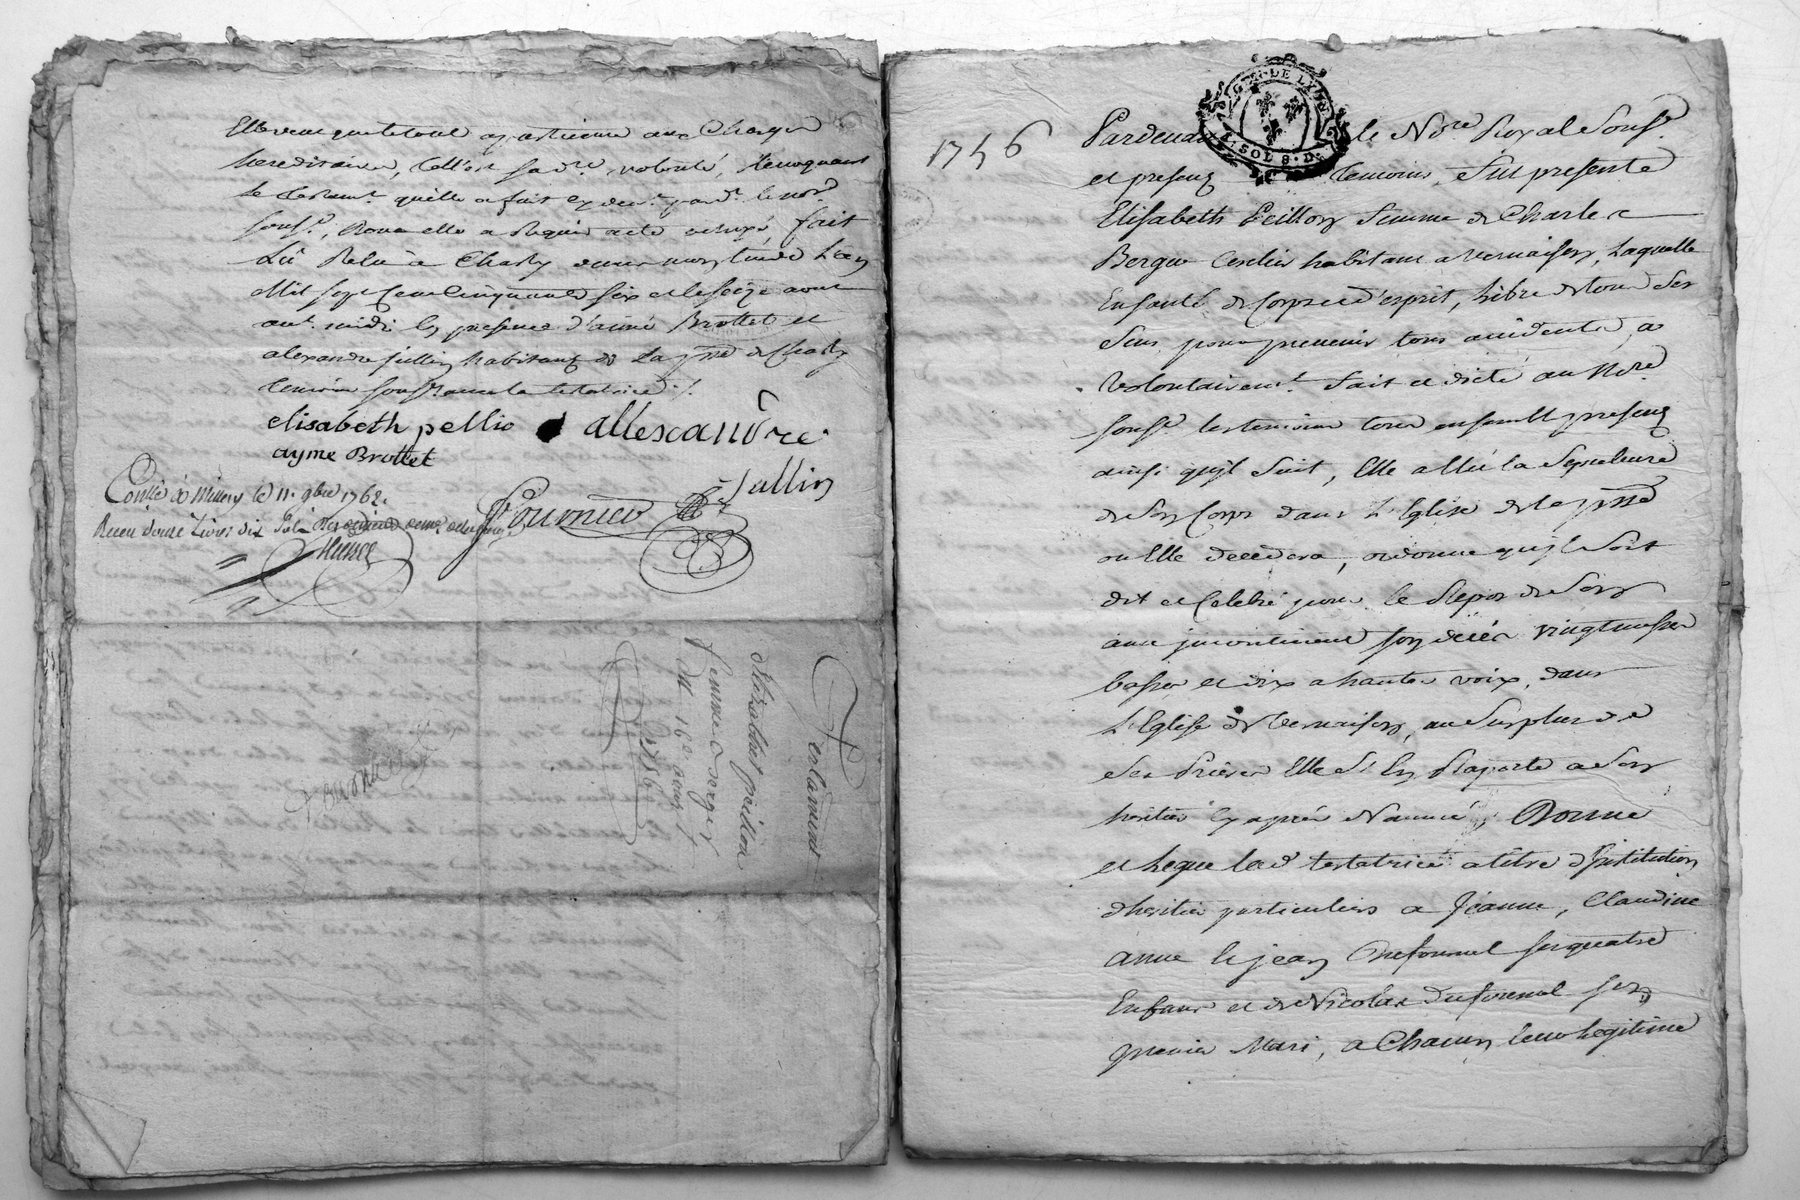 Elle veut que le tout apartienne aux Charges
hereditaires, Telle est sa d.re volonté, Revoquant
le testam.t quelle a fait cy dev.t pard.t le no.re
souss.é, Dont elle a Requis acte octroyé, fait
Lû Relu à Charly
Mil sept Cent Cinquante six et le seize aout
av.t midi En presence d'aimé Brottet et
alexandre jullin habitants de La p.sse de Charly
temoins sous.nés avec la testatrice ./.
elisabeth pellio allexandre
ayme Brottet Jullin
Conllé à Millery le 11. 9bre 1762.
Receu douze Livres dix sols
Fournier
Testament
Elizabeth peillon
femme berger
du 16e aoust
1756
1756
GEN. DE LYON
SOLS. D.
Pardevant le No.re Royal Souss.é
et presents temoins, Fut presente
Elisabeth Peillon femme de Charles
Bergue habitant a Vernaison, Laquelle
En santé de Corps et d'esprit, Libre de tous Ses
Sens, pour prevenir tous accidents, a
Volontairem.t fait et dicté au No.re
souss.é les temoins tous ensemble presents
ainsi qu'il Suit, Elle a Elu la Sepulture
de Son Corps dans L'Eglise de la p.sse
ou Elle decedera, ordonne qu'il Soit
dit et Celebré pour le Repos de Son
ame incontinent son décés vingt messes
basses et dix a hautes voix, dans
L'Eglise de Vernaison, au Surplus de
Ses Prieres Elle S'En Raporte a Son
heritier Cy après Nommé, Donne
et Legue lad.e testatrice a titre d'Institution
d'heritiers particuliers a Jeanne, Claudine
anne et jean Dufournel ses quatre
Enfans et de Nicolas dufournel son
premier Mari, a Chacun leur Legitime